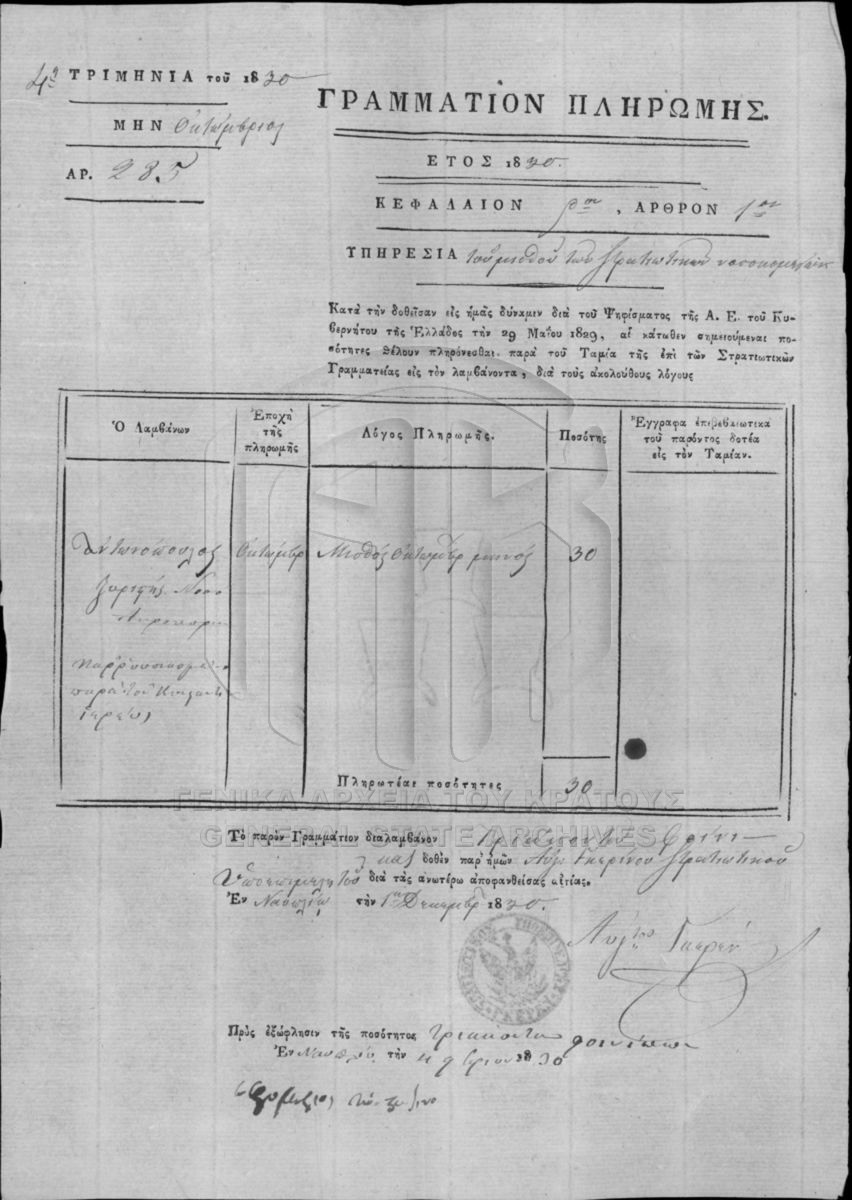 4η ΤΡΙΜΗΝΙΑ τοῦ 1830
ΜΗΝ Ὀκτώμβριος
ΑΡ. 285
ΓΡΑΜΜΑΤΙΟΝ ΠΛΗΡΩΜΗΣ.
ΕΤΟΣ 1830.
ΚΕΦΑΛΑΙΟΝ , ΑΡΘΡΟΝ 1ον
ΥΠΗΡΕΣΙΑ τοῦ μισθοῦ τῶν στρατιωτικῶν νοσοκομείων
Κατὰ τὴν δοθεῖσαν εἰς ἡμᾶς δύναμιν διὰ τοῦ Ψηφίσματος τῆς Α. Ε. τοῦ Κυ-
βερνήτου τῆς Ἑλλάδος τὴν 29 Μαΐου 1829, αἱ κάτωθεν σημειούμεναι πο-
σότητες θέλουν πληρόνεσθαι παρὰ τοῦ Ταμία τῆς ἐπὶ τῶν Στρατιωτικῶν
Γραμματείας εἰς τὸν λαμβάνοντα, διὰ τοὺς ἀκολούθους λόγους
Ὁ Λαμβάνων
Ἐποχὴ
τῆς
πληρωμῆς
Λόγος Πληρωμῆς.
Ποσότης
Ἔγγραφα ἐπιβεβαιωτικὰ
τοῦ παρόντος δοτέα
εἰς τὸν Ταμίαν.
Ἀντωνόπουλος Ὀκτώμβρ Μισθός Ὀκτωμβρ μηνός 30
παρὰ τοῦ
Πληρωτέαι ποσότητες 30
ΓΕΝΙΚΑ ΑΡΧΕΙΑ ΤΟΥ ΚΡΑΤΟΥΣ
GENERAL STATE ARCHIVES
Τὸ παρὸν Γραμμάτεον διαλαμβάνον τριάκοντα φοίνι-
κας δοθὲν παρ' ἡμῶν στρατιωτικοῦ
διὰ τὰς ἀνωτέρω ἀποφανθείσας αἰτίας.
Ἐν Ναυπλίῳ τὴν 1ην Δεκεμβρ 1830.
Πρὸς ἐξώφλησιν τῆς ποσότητος τριάκοντα φοινίκων
Ἐν Ναυπλίῳ τὴν 1830